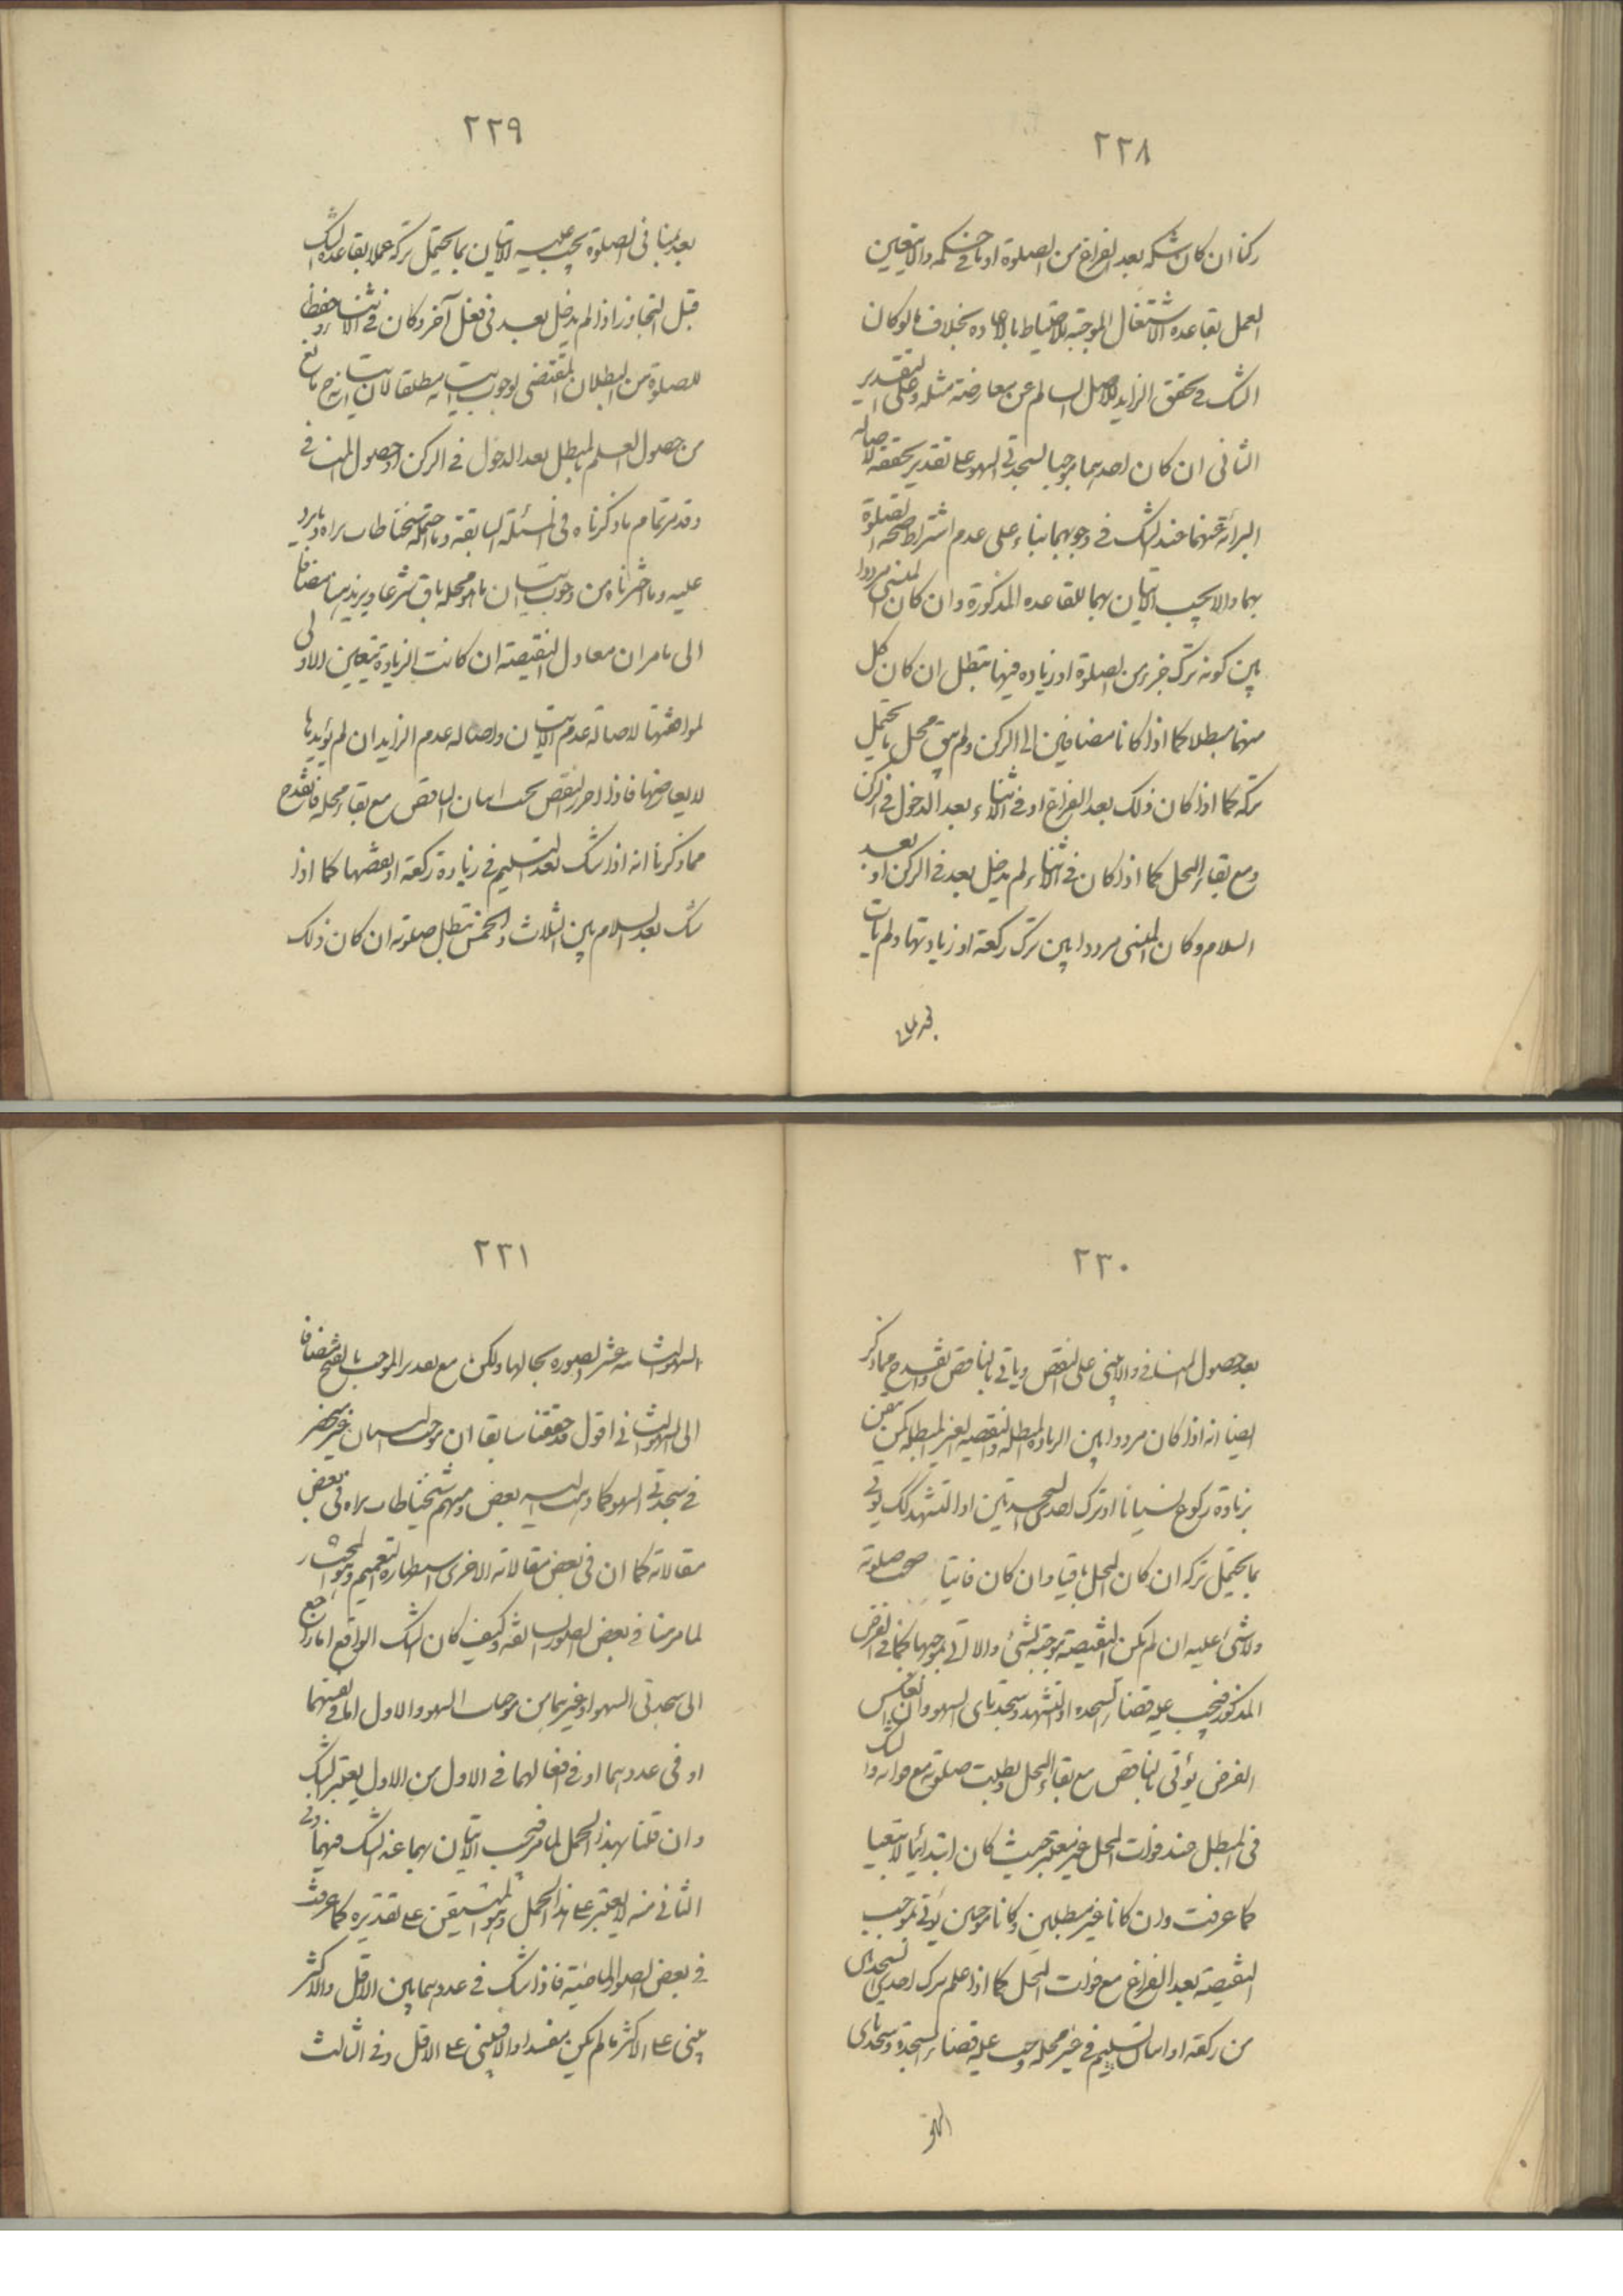 ٢٢٨
ركنا ان كان شكه بعد الفراغ من الصلوة او ما فى حكمه والا يتعين
العمل بقاعدة الاشتغال الموجبة للاحتياط بالاعادة بخلاف ما لو كان
الشك فى تحقق الزايد للاصل السالم عن معارضة مثله وعلى التقدير
الثانى ان كان احدهما موجبا لسجدتى السهو على تقدير تحققه لاصالة
البرائة عنهما عند الشك فى وجوبهما بناء على عدم اشتراط صحة الصلوة
بهما والا يجب الاتيان بهما للقاعدة المذكورة وان كان المنسى مرددا
بين كونه ترك جزء من الصلوة او زيادة فيها تبطل ان كان كل
منهما مبطلا كما اذا كانا مضافين الى الركن ولم يبق محل ما يحتمل
تركه كما اذا كان ذلك بعد الفراغ او فى الاثناء بعد الدخول فى الركن
ومع بقاء المحل كما اذا كان فى الاثناء لم يدخل بعد فى الركن او بعد
السلام وكان المنسى مرددا بين ترك ركعة او زيادتها ولم يات
٢٢٩
بعد بمنافى الصلوة يجب عليه الاتيان بما يحتمل تركه عملا بقاعدة الشك
قبل التجاوز اذا لم يدخل بعد فى فعل آخر وكان فى الاثناء حفظا
للصلوة من البطلان المقتضى لوجوب مطلقا لان مانع
من حصول العلم بالمبطل بعد الدخول فى الركن او حصول المنافى
وقد مر تمام ما ذكرناه فى المسئلة السابقة وما احتمله شيخنا طاب ثراه وما يرد
عليه وما اخترناه من وجوب اتيان ما هو محله باق شرعا ويزيد هنا مضافا
الى ما مر ان معادل النقيصة ان كانت الزيادة تتعين الاولى
لموافقتها لاصالة عدم الاتيان واصالة عدم الزايد ان لم يؤيدها
لا يعارضها فاذا احرز النقص يجب اتيان الناقص مع بقاء محله فانقدح
مما ذكرنا انه اذا شك بعد التسليم فى زيادة ركعة او بعضها كما اذا
شك بعد السلام بين الثلاث والخمس تبطل صلوته ان كان ذلك
٢٣٠
بعد حصول المنافى والا يبنى على النقص وياتى بالناقص وانقدح مما ذكر
ايضا انه اذا كان مرددا بين الزيادة المبطلة والنقيصة الغير المبطلة كمن تيقن
بزيادة ركوع نسيانا او ترك احدى السجدتين او التشهد كذلك يؤتى
بما يحتمل تركه ان كان المحل باقيا وان كان فائتا صحت صلوته
ولا شئ عليه ان لم يكن النقيصة موجبة لشئ والا اتى بموجبها كما فى الفرض
المذكور فيجب عليه قضاء السجدة او التشهد وسجدتاى السهو وان انعكس
الفرض يؤتى بالناقص مع بقاء المحل وبطلت صلوته مع فواته والشك
فى المبطل عند فوات المحل غير معتبر حيث كان ابتدائيا لا تبعيا
كما عرفت وان كانا غير مبطلين وكانا موجبين يؤتى بموجب
النقيصة بعد الفراغ مع فوات المحل كما اذا علم ترك احدى السجدتين
من ركعة او اتيان التسليم فى غير محله وجب عليه قضاء السجدة وسجدتاى
السهو
٢٣١
السهو الثامنة عشر الصورة بحالها ولكن مع تعدير الموجب بالفتح مضافا
الى السهو الثانى اقول قد حققنا سابقا ان موجب النسيان غير منحصر
فى سجدتى السهو كما ذهب اليه بعض ومنهم شيخنا طاب ثراه فى بعض
مقالاته كما ان فى بعض مقالاته الاخرى استظهاره التعميم وهو المختار
لما مر منا فى بعض الصور السابقة وكيف كان الشك الواقع اما راجع
الى سجدتى السهو او غيرهما من موجبات السهو والاول اما فى نفسهما
او فى عددهما او فى افعالهما فى الاول من الاول يعتبر الشك
وان قلنا بهذا الحمل لما مر فيجب الاتيان بهما عند الشك فيهما وفى
الثانى منه لا يعتبر على هذا الحمل وهو المتيقن على تقديره كما عرفت
فى بعض الصور الماضية فاذا شك فى عددهما بين الاقل والاكثر
يبنى على الاكثر ما لم يكن مفسدا والا فيبنى على الاقل وفى الثالث